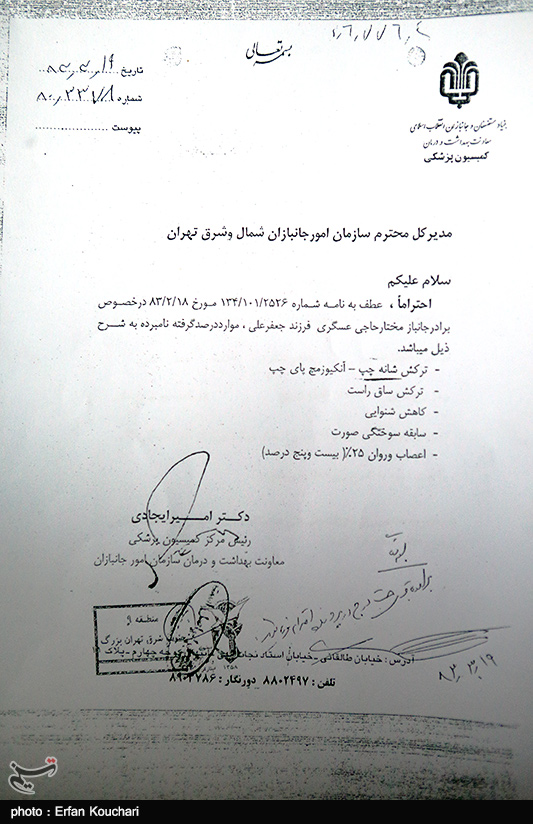 بسمه تعالی
تاریخ
شماره
پیوست
بنیاد مستضعفان و جانبازان انقلاب اسلامی
معاونت بهداشت و درمان
کمیسیون پزشکی
مدیرکل محترم سازمان امورجانبازان شمال وشرق تهران
سلام علیکم
احتراماً ، عطف به نامه شماره ۱۳۴/۱۰۱/۲۵۲۶ مورخ ۸۳/۲/۱۸ درخصوص
برادرجانباز مختارحاجی عسگری فرزند جعفرعلی ، مواردددرصدگرفته نامبرده به شرح
ذیل میباشد.
- ترکش شانه چپ – آنکیوزمچ پای چپ
- ترکش ساق راست
- کاهش شنوایی
- سابقه سوختگی صورت
- اعصاب وروان ۲۵٪( بیست وپنج درصد)
دکتر امیرایجادی
رئیس مرکز کمیسیون پزشکی
معاونت بهداشت و درمان سازمان امور جانبازان
منطقه
شرق تهران بزرگ
آدرس : خیابان طالقانی – خیابان استاد نجات
چهارم – پلاک
تلفن : ۸۸۰۲۴۹۷ دورنگار : ۸۹۰۲۷۸۶
۸۳,۳,۱۹
تسنیم
photo : Erfan Kouchari